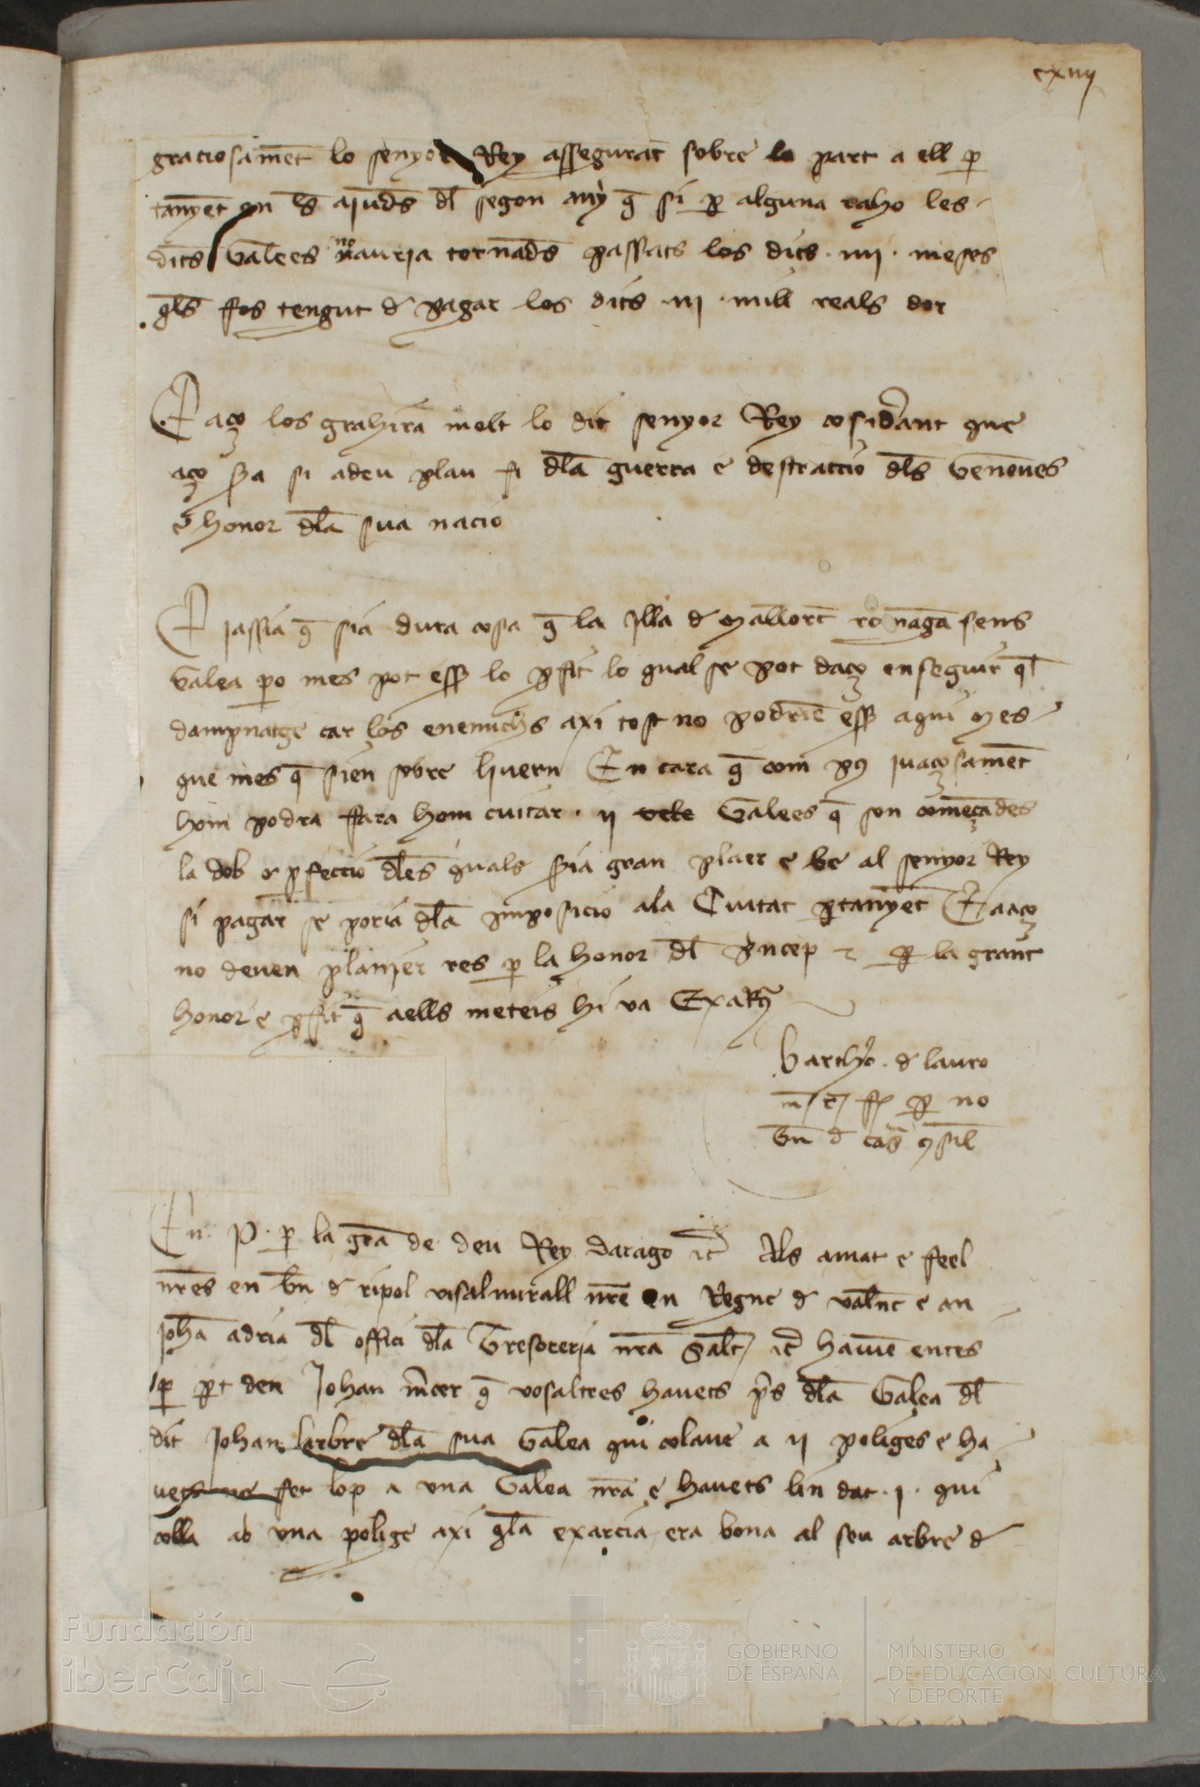 cxiiij
graciosament lo senyor Rey assegurat sobre la part a ell p
tanyet en ls ajuds dl segon any q si p alguna raho les
dits Galees no auria tornads passats los dits · iiij · meses
qls fos tengut d pagar los dits iij · mill reals dor
E aço los grahira molt lo dit senyor Rey cosiderant que
aço sa si a deu plau fi dla guerra e destruccio dls Genoveses
e honor dla sua nacio
E jassia q sia dura cosa q la Illa d Mallorc romaga sens
Galea po mes pot esser lo pfit lo qual se pot daço enseguir ql
dampnatge car los enemichs axi tost no podrie esser aqui Mes
que mes q sien sobre livern Encara q com pus ivaçosament
hom podra fara hom cuitar · ij Galees q son començades
la dob pfeccio dles quals sia gran plaer e be al senyor Rey
si pagar se poria dla imposicio ala Ciutat ptanyet E a aço
no deven planyer res p la honor dl Princep p la grant
honor e pfit q aells meteis hi va
Bartho · d lauro
p no
En · P · p la gra de deu Rey Darago Als amat e feel
nres en bn d ripol visalmirall nre en Regne d valnc e an
Joha adria dl offici dla Tresoreria nra Salt havem entes
p pt den Johan mcer q vosaltres havets ps dla Galea dl
dit Johan larbre dla sua Galea qui colave a ij poliges e ha
vets ne fet lop a una Galea nra e havets lin dat · j · qui
colla ab una polige axi qla exarcia era bona al seu arbre d
Fundación
iberCaja
GOBIERNO
DE ESPAÑA
MINISTERIO
DE EDUCACIÓN, CULTURA
Y DEPORTE